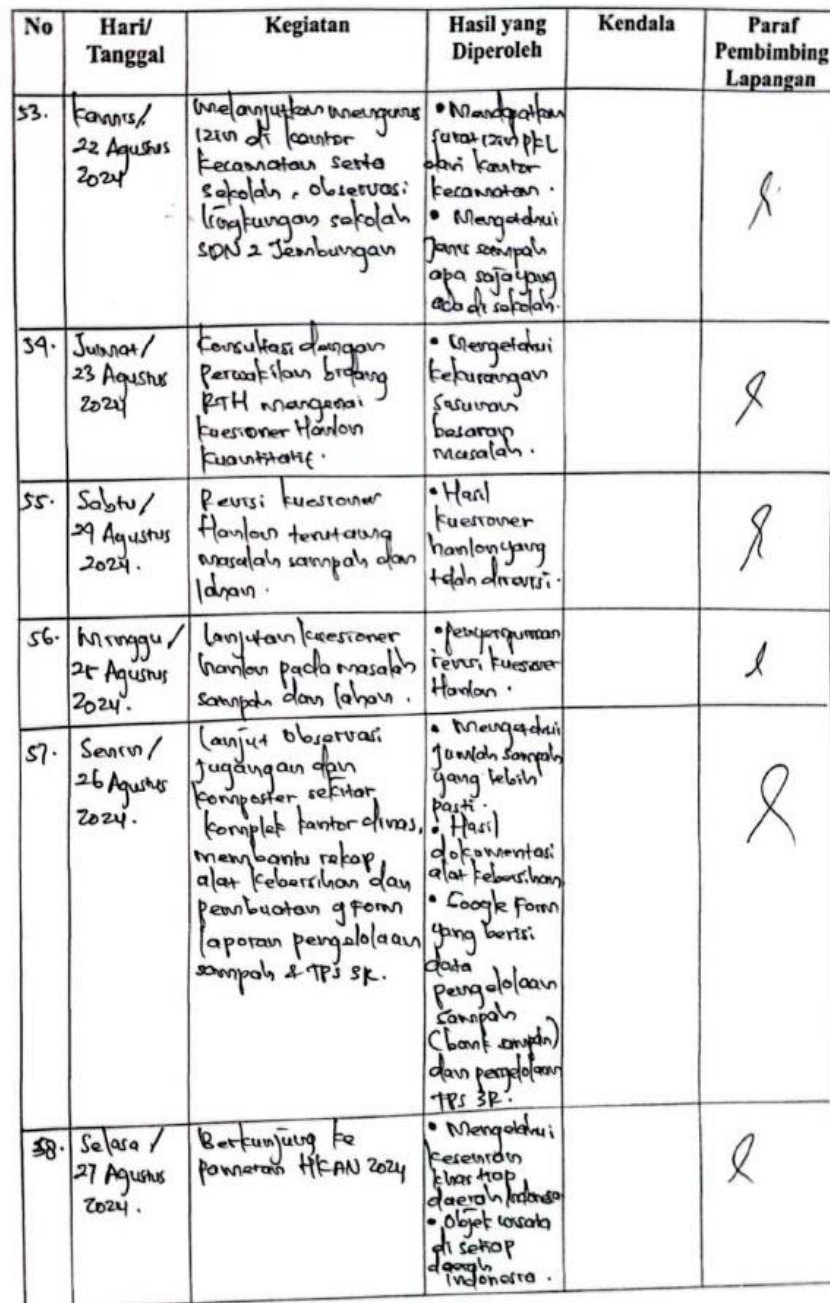 No Hari/ Tanggal Kegiatan Hasil yang Diperoleh Kendala Paraf Pembimbing Lapangan
53.
Kamis/
22 Agustus
2024
Melanjutkan mengurus
izin di kantor
kecamatan serta
sekolah, observasi
lingkungan sekolah
SDN 2 Jembungan
• Mendapatkan
surat izin PKL
dari kantor
kecamatan.
• Mengetahui
Jenis sampah
apa saja yang
ada di sekolah.
54.
Jumat/
23 Agustus
2024
Konsultasi dengan
perwakilan bidang
RTH mengenai
kuesioner Hanlon
kuantitatif.
• Mengetahui
kekurangan
susunan
besaran
masalah.
55.
Sabtu/
24 Agustus
2024.
Revisi kuesioner
Hanlon tentang
masalah sampah dan
lahan.
• Hasil
kuesioner
hanlon yang
telah direvisi.
56.
Minggu/
25 Agustus
2024.
Lanjutan kuesioner
hanlon pada masalah
sampah dan lahan.
• Penyempurnaan
revisi kuesioner
Hanlon.
57.
Senin/
26 Agustus
2024.
Lanjut observasi
jugangan dan
komposter sekitar
komplek kantor dinas,
membantu rekap
alat kebersihan dan
pembuatan g form
laporan pengelolaan
sampah & TPS 3R.
• Mengetahui
jumlah sampah
yang lebih
pasti.
• Hasil
dokumentasi
alat kebersihan
• Google Form
yang berisi
data
pengelolaan
sampah
(bank sampah)
dan pengelolaan
TPS 3R.
58.
Selasa/
27 Agustus
2024.
Berkunjung ke
pameran HKAN 2024
• Mengetahui
kesenian
khas tiap
daerah Indonesia
• Objek wisata
di setiap
daerah
Indonesia.